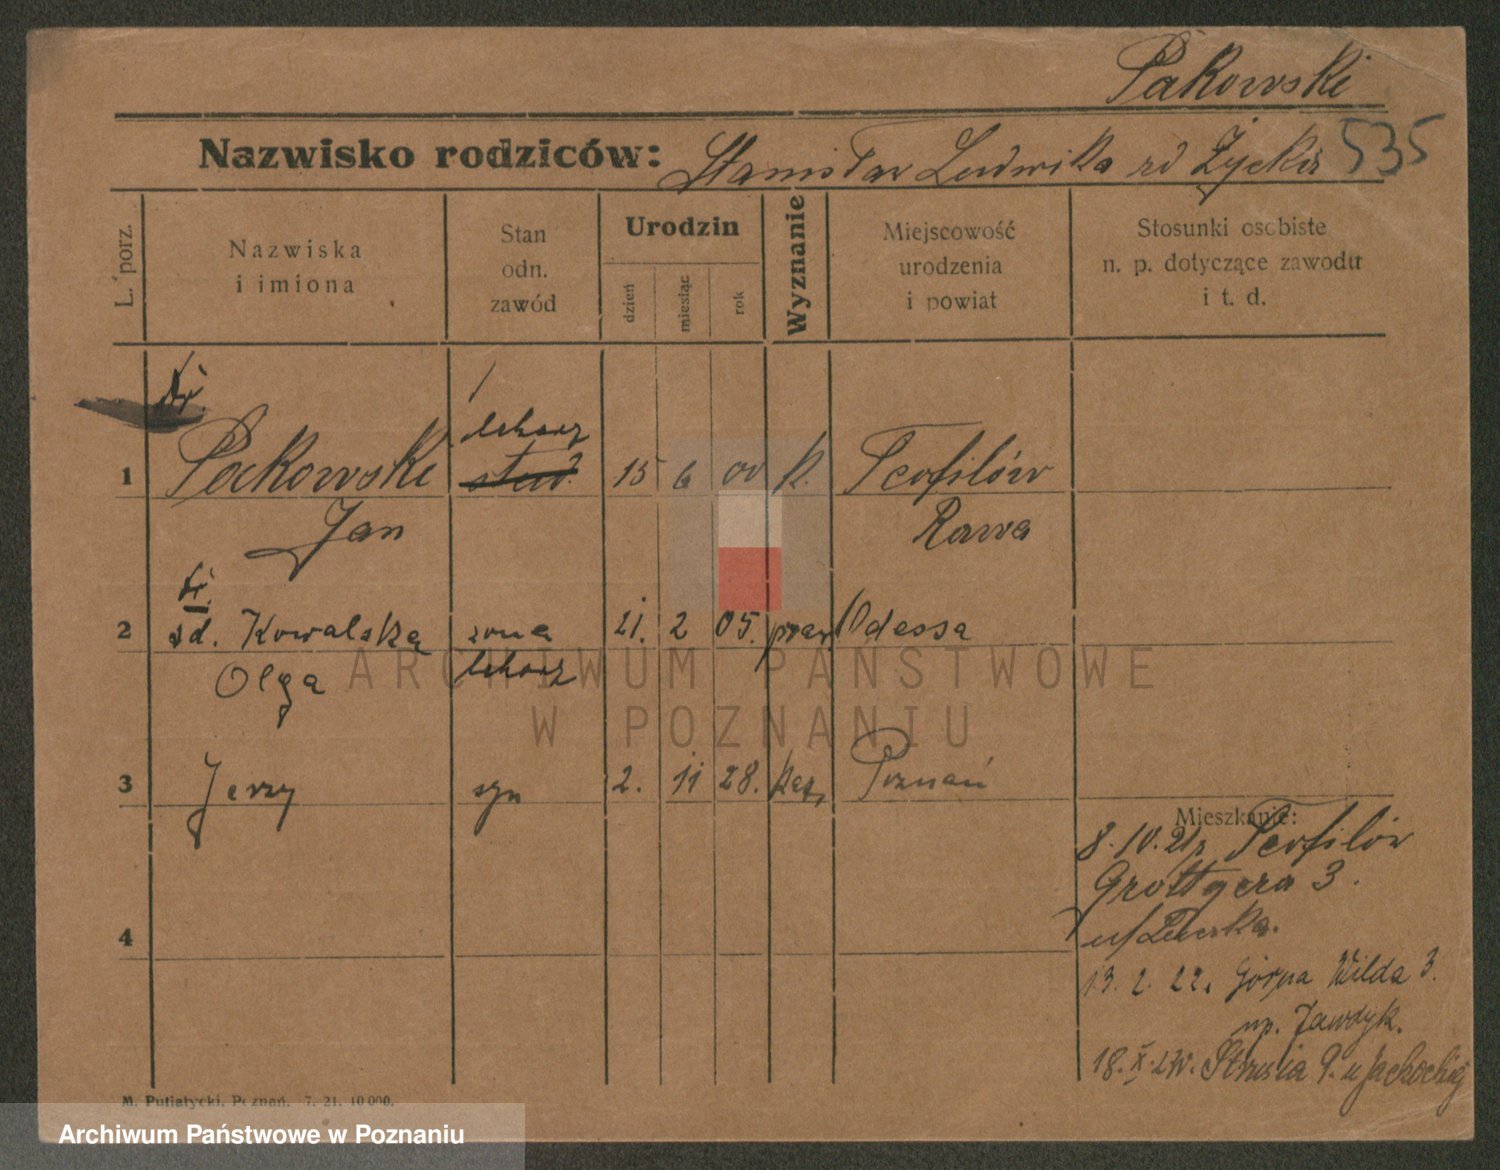 Pakowski
Nazwisko rodziców: Stanisław Ludwika zd Życka 535
L. porz.
Nazwiska
i imiona
Stan
odn.
zawód
Urodzin
dzień
miesiąc
rok
Wyznanie
Miejscowość
urodzenia
i powiat
Stosunki osobiste
n. p. dotyczące zawodu
i t. d.
Dr.
lekarz
1 Pakowski stud. 15 6 00 k. Teofilów
Jan Rawa
Dr.
2 zd. Kowalska żona 21. 2 05. praw Odessa
Olga lekarz
3 Jerzy syn 2. 11 28. kat, Poznań
Mieszkanie:
8. IV. 21 z Teofilów
Grottgera 3.
u/
4
13. 2. 22. Górna Wilda 3.
up. Jawdyk.
18. X. Strusia 9. u
M. Putiatycki, Poznań. 7. 21. 10 000.
ARCHIWUM PAŃSTWOWE
W POZNANIU
Archiwum Państwowe w Poznaniu